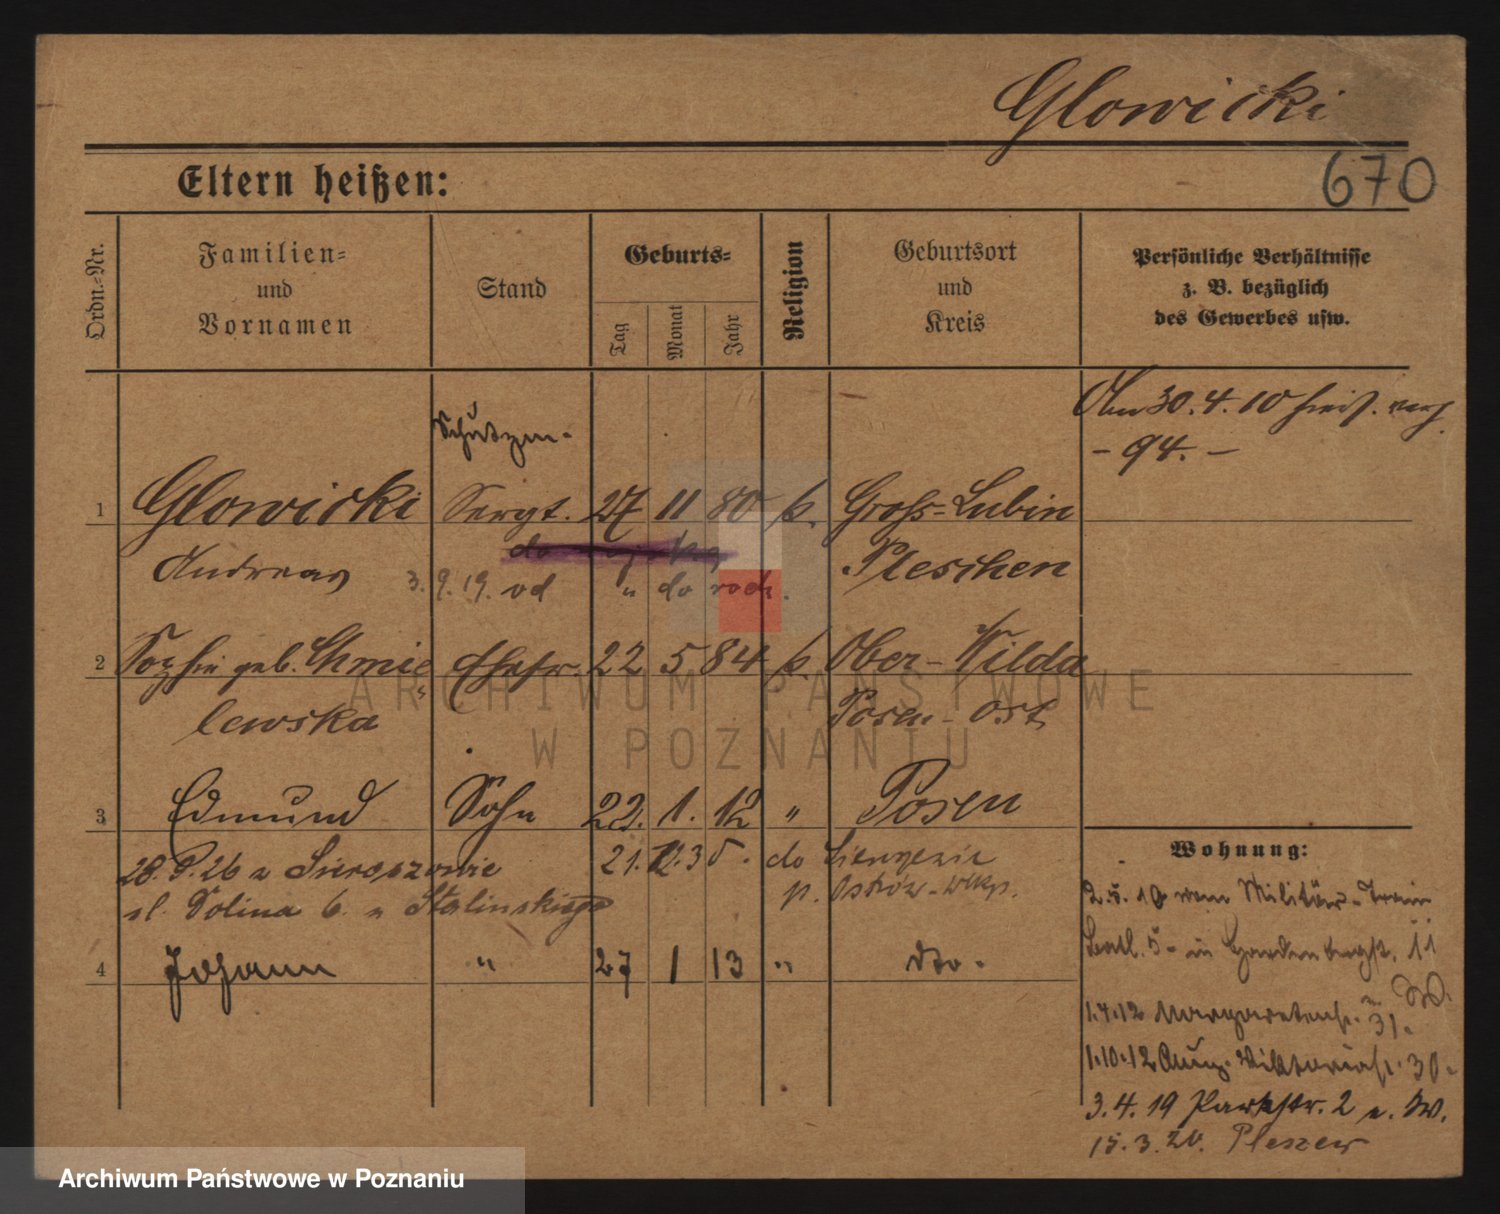 Glowicki
670
Eltern heißen:
Ordn.-Nr.
Familien-
und
Vornamen
Stand
Geburts-
Tag
Monat
Jahr
Religion
Geburtsort
und
Kreis
Persönliche Verhältnisse
z. B. bezüglich
des Gewerbes usw.
30.4.10
- 94. -
Schutzm.-
1 Glowicki Sergt. 27 11 80 k. Gross-Lubin
Andreas Pleschen
3.9.19. od " do rodz.
2 Sophie geb. Chmie Ehefr. 22 5 84 k. Ober-Wilda
lewska Posen-Ost
3 Edmund Sohn 22. 1. 12 " Posen
28.9.26 z Sieroszowic 21.12.35. do
ul. Dolina 6. Stalinskiego p. Ostrów-Wlkp.
4 Johann " 27 1 13 " do.
Wohnung:
2.5.10 vom Militär-Train
Batl. 5 - in 11
1.4.12 Margaretenstr. 31.
1.10.12 Viktoriastr. 30.
3.4.19 Parkstr. 2
15.3.20. Pleszew
ARCHIWUM PAŃSTWOWE
W POZNANIU
Archiwum Państwowe w Poznaniu